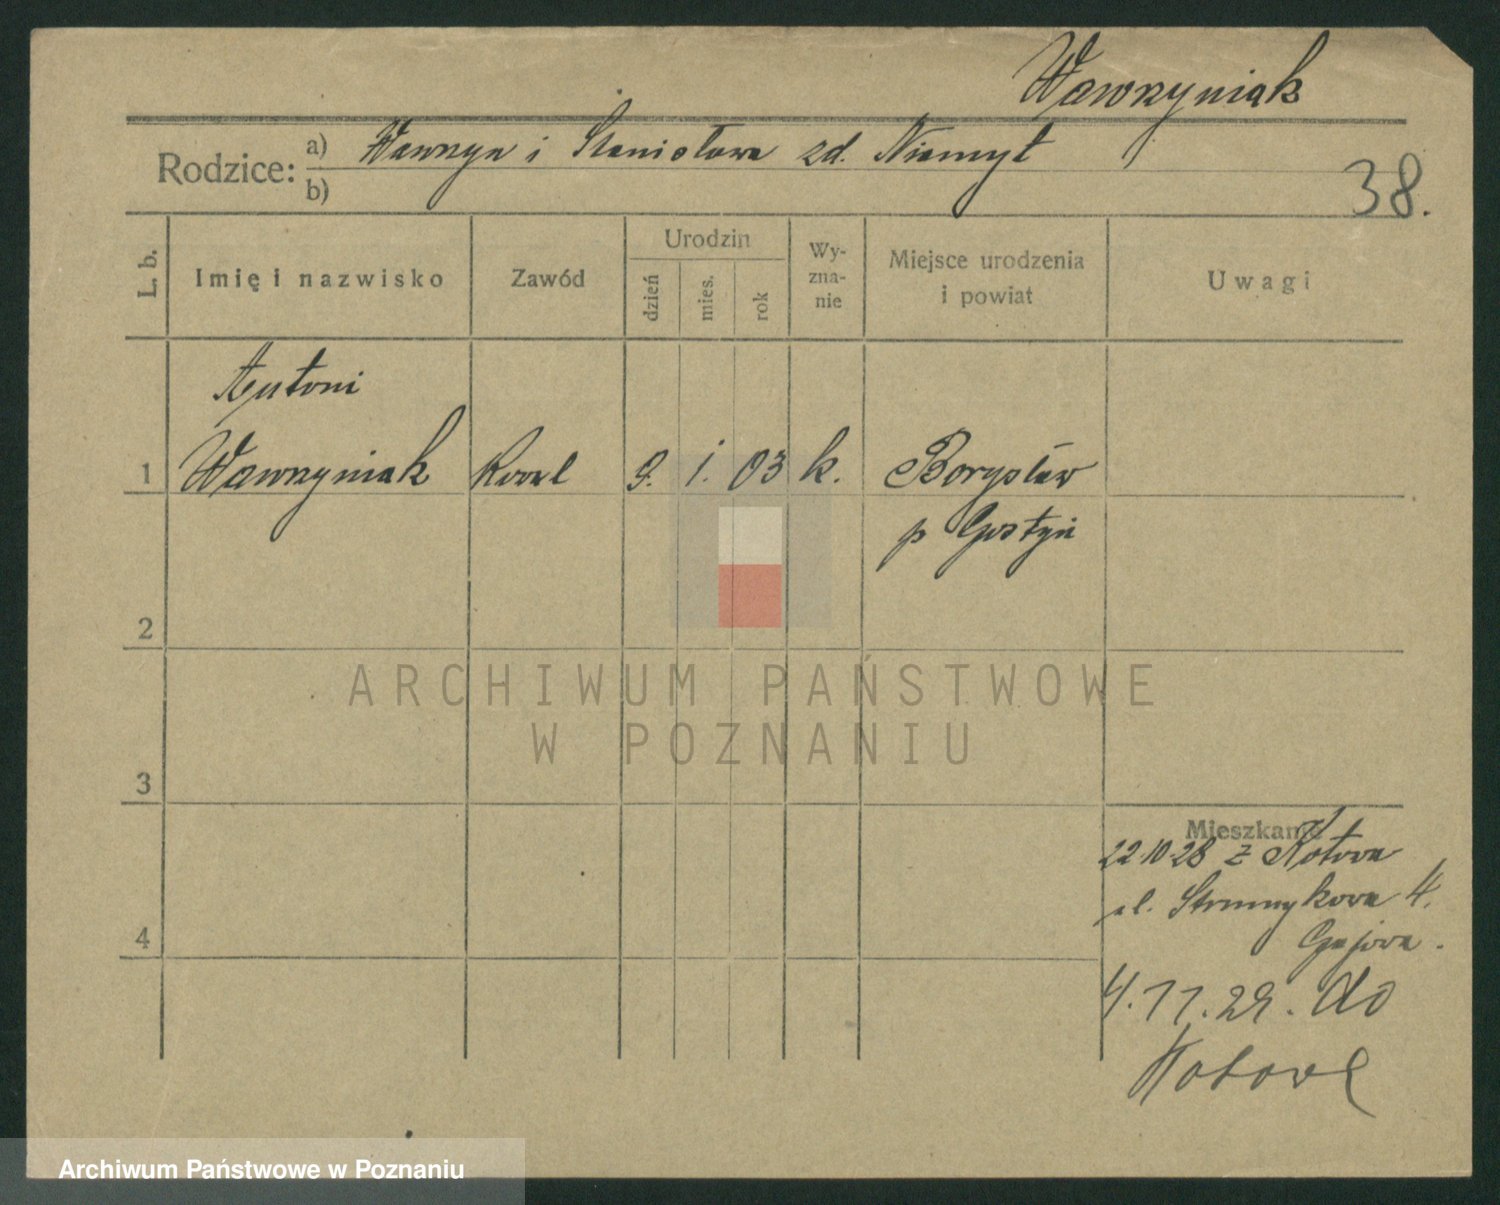 Wawrzyniak
Rodzice: a) Wawrzyn i Stanisława zd. Niemyt
b)
38.
L. b. Imię i nazwisko Zawód Urodzin dzień mies. rok Wy-zna-nie Miejsce urodzenia i powiat Uwagi
Antoni
1 Wawrzyniak Kowal 9. 1. 03 k. Borysław
p Gostyń
2
ARCHIWUM PAŃSTWOWE
W POZNANIU
3
Mieszkanie
22 10 28 z Kotowa
ul. Strumykowa 4.
Gajowa.
4
4. 11. 29. do
Kotowa
Archiwum Państwowe w Poznaniu